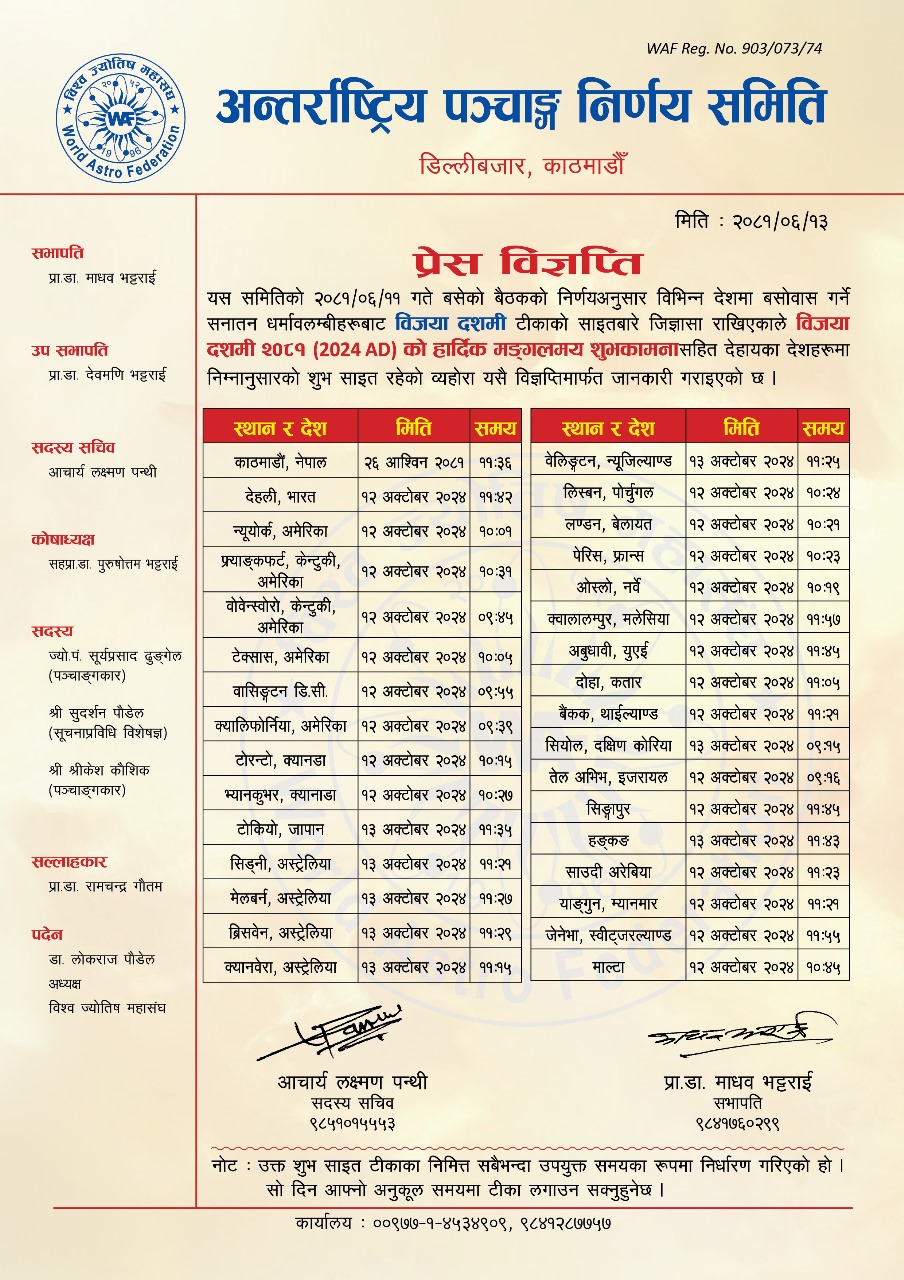 WAF Reg. No. 903/073/74
विश्व ज्योतिष महासंघ
२०५२
WAF
1996
World Astro Federation
अन्तर्राष्ट्रिय पञ्चाङ्ग निर्णय समिति
डिल्लीबजार, काठमाडौँ
मिति : २०८१/०६/१३
सभापति
प्रा.डा. माधव भट्टराई
उप सभापति
प्रा.डा. देवमणि भट्टराई
सदस्य सचिव
आचार्य लक्ष्मण पन्थी
कोषाध्यक्ष
सहप्रा.डा. पुरुषोत्तम भट्टराई
सदस्य
ज्यो.पं. सूर्यप्रसाद ढुङ्गेल
(पञ्चाङ्गकार)
श्री सुदर्शन पौडेल
(सूचनाप्रविधि विशेषज्ञ)
श्री श्रीकेश कौशिक
(पञ्चाङ्गकार)
सल्लाहकार
प्रा.डा. रामचन्द्र गौतम
पदेन
डा. लोकराज पौडेल
अध्यक्ष
विश्व ज्योतिष महासंघ
प्रेस विज्ञप्ति
यस समितिको २०८१/०६/११ गते बसेको बैठकको निर्णयअनुसार विभिन्न देशमा बसोवास गर्ने
सनातन धर्मावलम्बीहरूबाट विजया दशमी टीकाको साइतबारे जिज्ञासा राखिएकाले विजया
दशमी २०८१ (2024 AD) को हार्दिक मङ्गलमय शुभकामनासहित देहायका देशहरूमा
निम्नानुसारको शुभ साइत रहेको व्यहोरा यसै विज्ञप्तिमार्फत जानकारी गराइएको छ ।
स्थान र देश मिति समय
काठमाडौं, नेपाल २६ आश्विन २०८१ ११:३६
देहली, भारत १२ अक्टोबर २०२४ ११:४२
न्यूयोर्क, अमेरिका १२ अक्टोबर २०२४ १०:०१
फ्र्याङ्कफर्ट, केन्टुकी, १२ अक्टोबर २०२४ १०:३१
अमेरिका
वोवेन्स्वोरो, केन्टुकी, १२ अक्टोबर २०२४ ०९:४५
अमेरिका
टेक्सास, अमेरिका १२ अक्टोबर २०२४ १०:०५
वासिङ्टन डि.सी. १२ अक्टोबर २०२४ ०९:५५
क्यालिफोर्निया, अमेरिका १२ अक्टोबर २०२४ ०९:३९
टोरन्टो, क्यानडा १२ अक्टोबर २०२४ १०:१५
भ्यानकुभर, क्यानाडा १२ अक्टोबर २०२४ १०:२७
टोकियो, जापान १३ अक्टोबर २०२४ ११:३५
सिड्नी, अस्ट्रेलिया १३ अक्टोबर २०२४ ११:२१
मेलबर्न, अस्ट्रेलिया १३ अक्टोबर २०२४ ११:२७
ब्रिसवेन, अस्ट्रेलिया १३ अक्टोबर २०२४ ११:२९
क्यानवेरा, अस्ट्रेलिया १३ अक्टोबर २०२४ ११:१५
स्थान र देश मिति समय
वेलिङ्गटन, न्यूजिल्याण्ड १३ अक्टोबर २०२४ ११:२५
लिस्बन, पोर्चुगल १२ अक्टोबर २०२४ १०:२४
लण्डन, बेलायत १२ अक्टोबर २०२४ १०:२१
पेरिस, फ्रान्स १२ अक्टोबर २०२४ १०:२३
ओस्लो, नर्वे १२ अक्टोबर २०२४ १०:१९
क्वालालम्पुर, मलेसिया १२ अक्टोबर २०२४ ११:५७
अबुधावी, युएई १२ अक्टोबर २०२४ ११:४५
दोहा, कतार १२ अक्टोबर २०२४ ११:०५
बैंकक, थाईल्याण्ड १२ अक्टोबर २०२४ ११:२१
सियोल, दक्षिण कोरिया १३ अक्टोबर २०२४ ०९:१५
तेल अभिभ, इजरायल १२ अक्टोबर २०२४ ०९:१६
सिङ्गापुर १२ अक्टोबर २०२४ ११:४५
हङ्कङ १३ अक्टोबर २०२४ ११:४३
साउदी अरेबिया १२ अक्टोबर २०२४ ११:२३
याङ्गुन, म्यानमार १२ अक्टोबर २०२४ ११:२१
जेनेभा, स्वीट्जरल्याण्ड १२ अक्टोबर २०२४ ११:५५
माल्टा १२ अक्टोबर २०२४ १०:४५
आचार्य लक्ष्मण पन्थी
सदस्य सचिव
९८५१०१५५५३
प्रा.डा. माधव भट्टराई
सभापति
९८४१७६०२९९
नोट : उक्त शुभ साइत टीकाका निमित्त सबैभन्दा उपयुक्त समयका रूपमा निर्धारण गरिएको हो ।
सो दिन आफ्नो अनुकूल समयमा टीका लगाउन सक्नुहुनेछ ।
कार्यालय : ००९७७-१-४५३४९०९, ९८४१२८७७५७